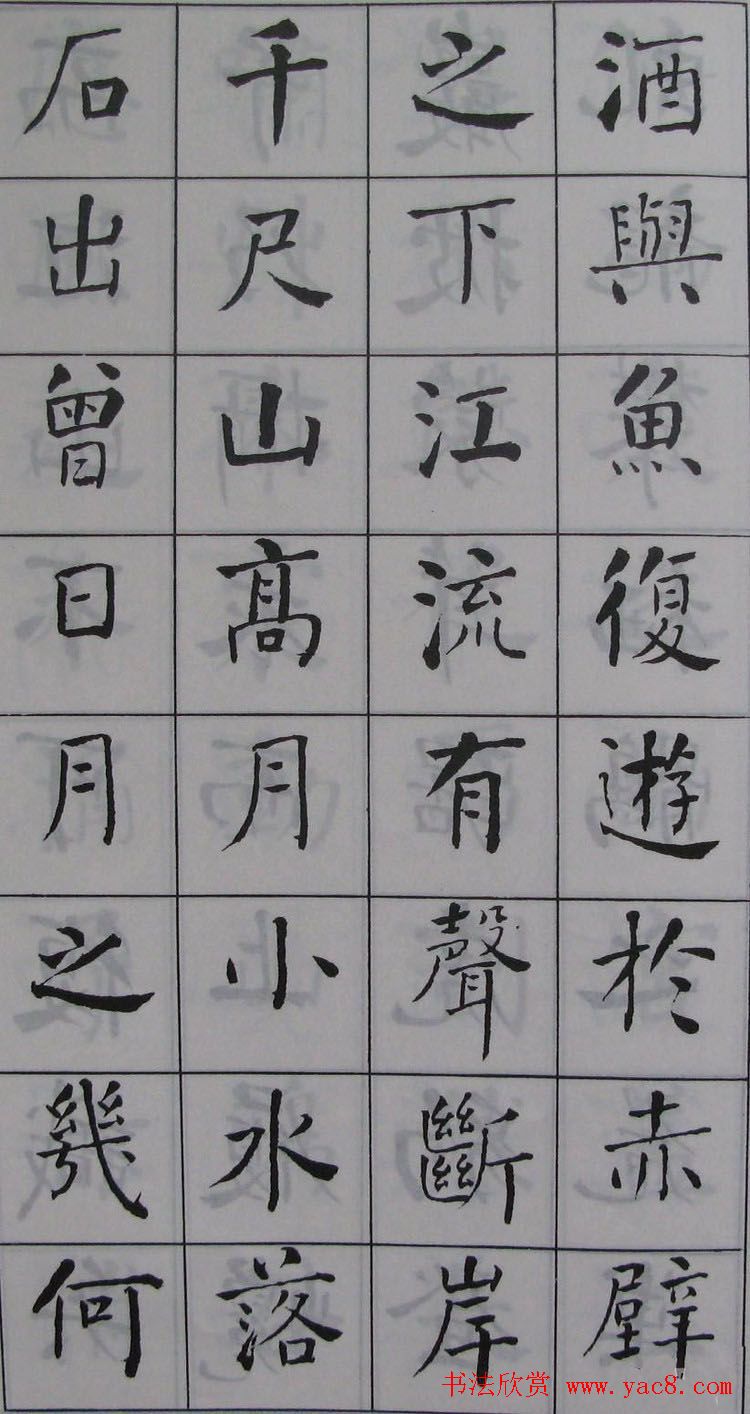 酒與魚復遊於赤壁
之下江流有聲斷岸
千尺山高月小水落
石出曾日月之幾何
书法欣赏 www.yac8.com